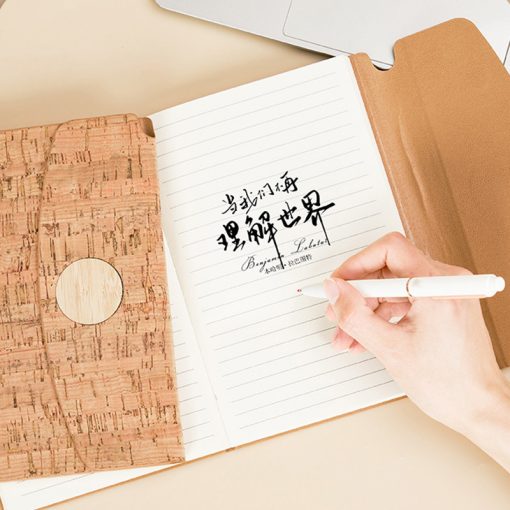 当我们不再
理解世界
Benjamin Labatut
本哈明·拉巴图特